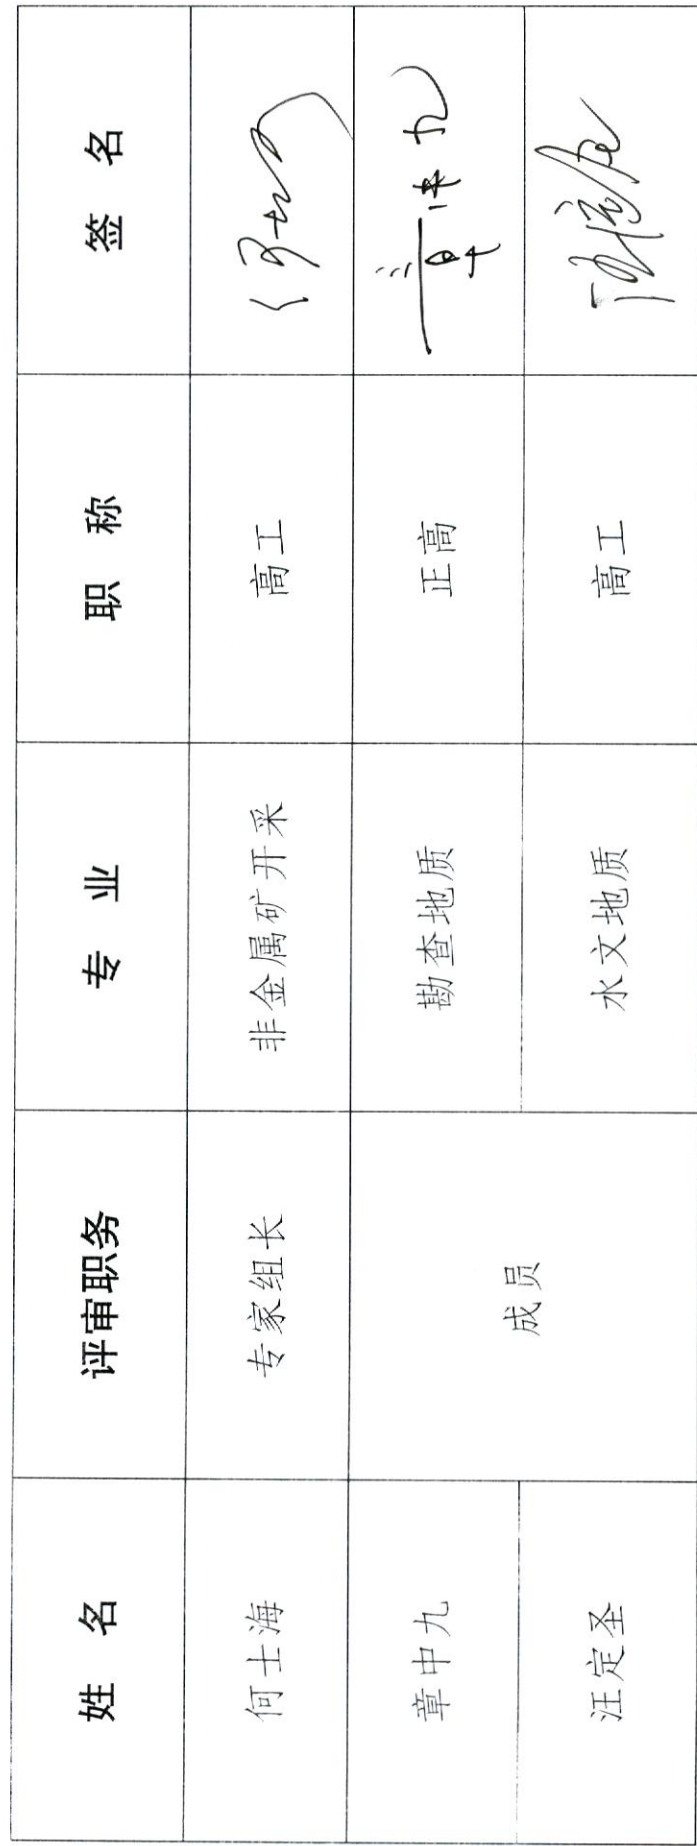 姓 名 评审职务 专 业 职 称 签 名
何士海 专家组长 非金属矿开采 高工
章中九 成员 勘查地质 正高
汪定圣 水文地质 高工